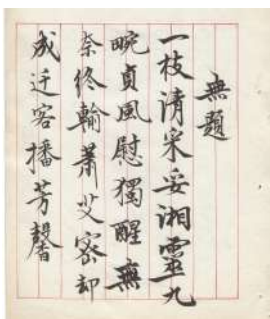 無題
一枝清采妥湘靈九
畹貞風慰獨醒無
奈終輸蕭艾密却
成迁客播芳馨